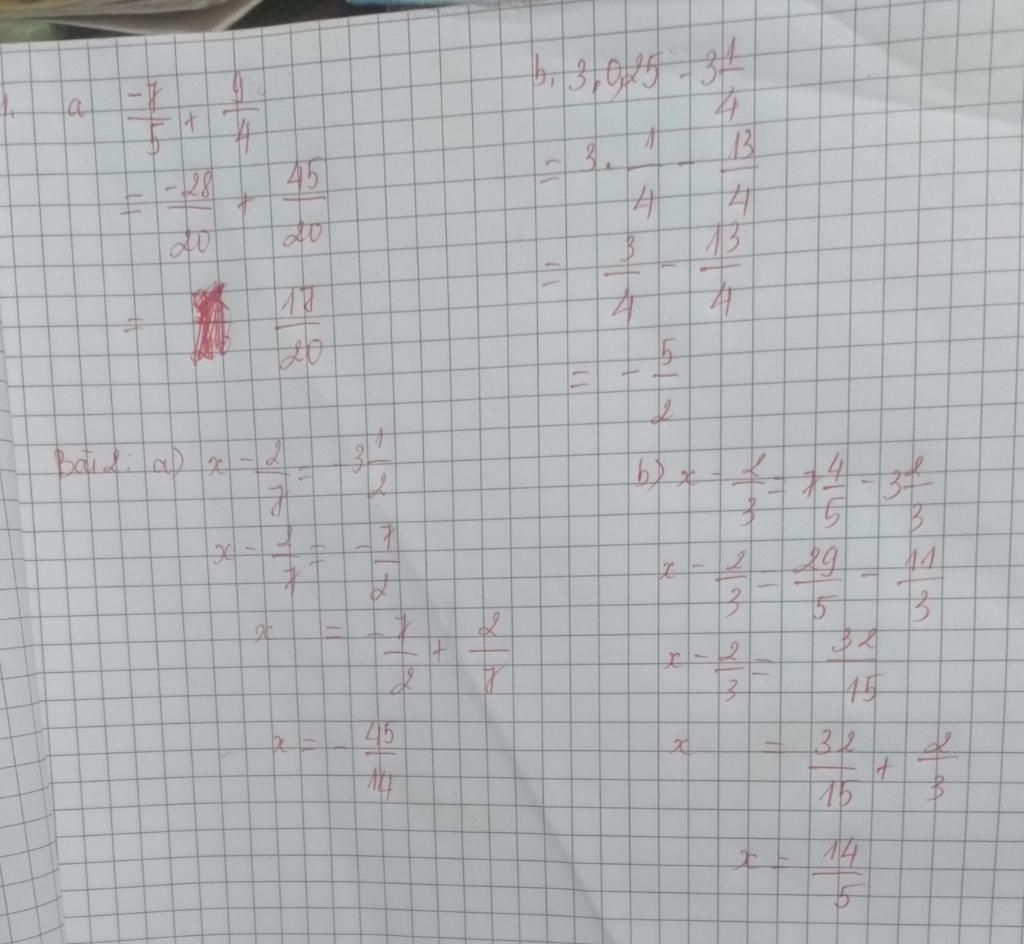 1. a -7/5 + 9/4
= -28/20 + 45/20
= 17/20
b, 3,0,25 - 3 1/4
= 3. 1/4 - 13/4
= 3/4 - 13/4
= - 5/2
Bài 2: a) x - 2/7 = - 3 1/2
x - 2/7 = - 7/2
x = - 7/2 + 2/7
x = - 45/14
b) x - 2/3 = 7 4/5 - 3 2/3
x - 2/3 = 29/5 - 11/3
x - 2/3 = 32/15
x = 32/15 + 2/3
x = 14/5